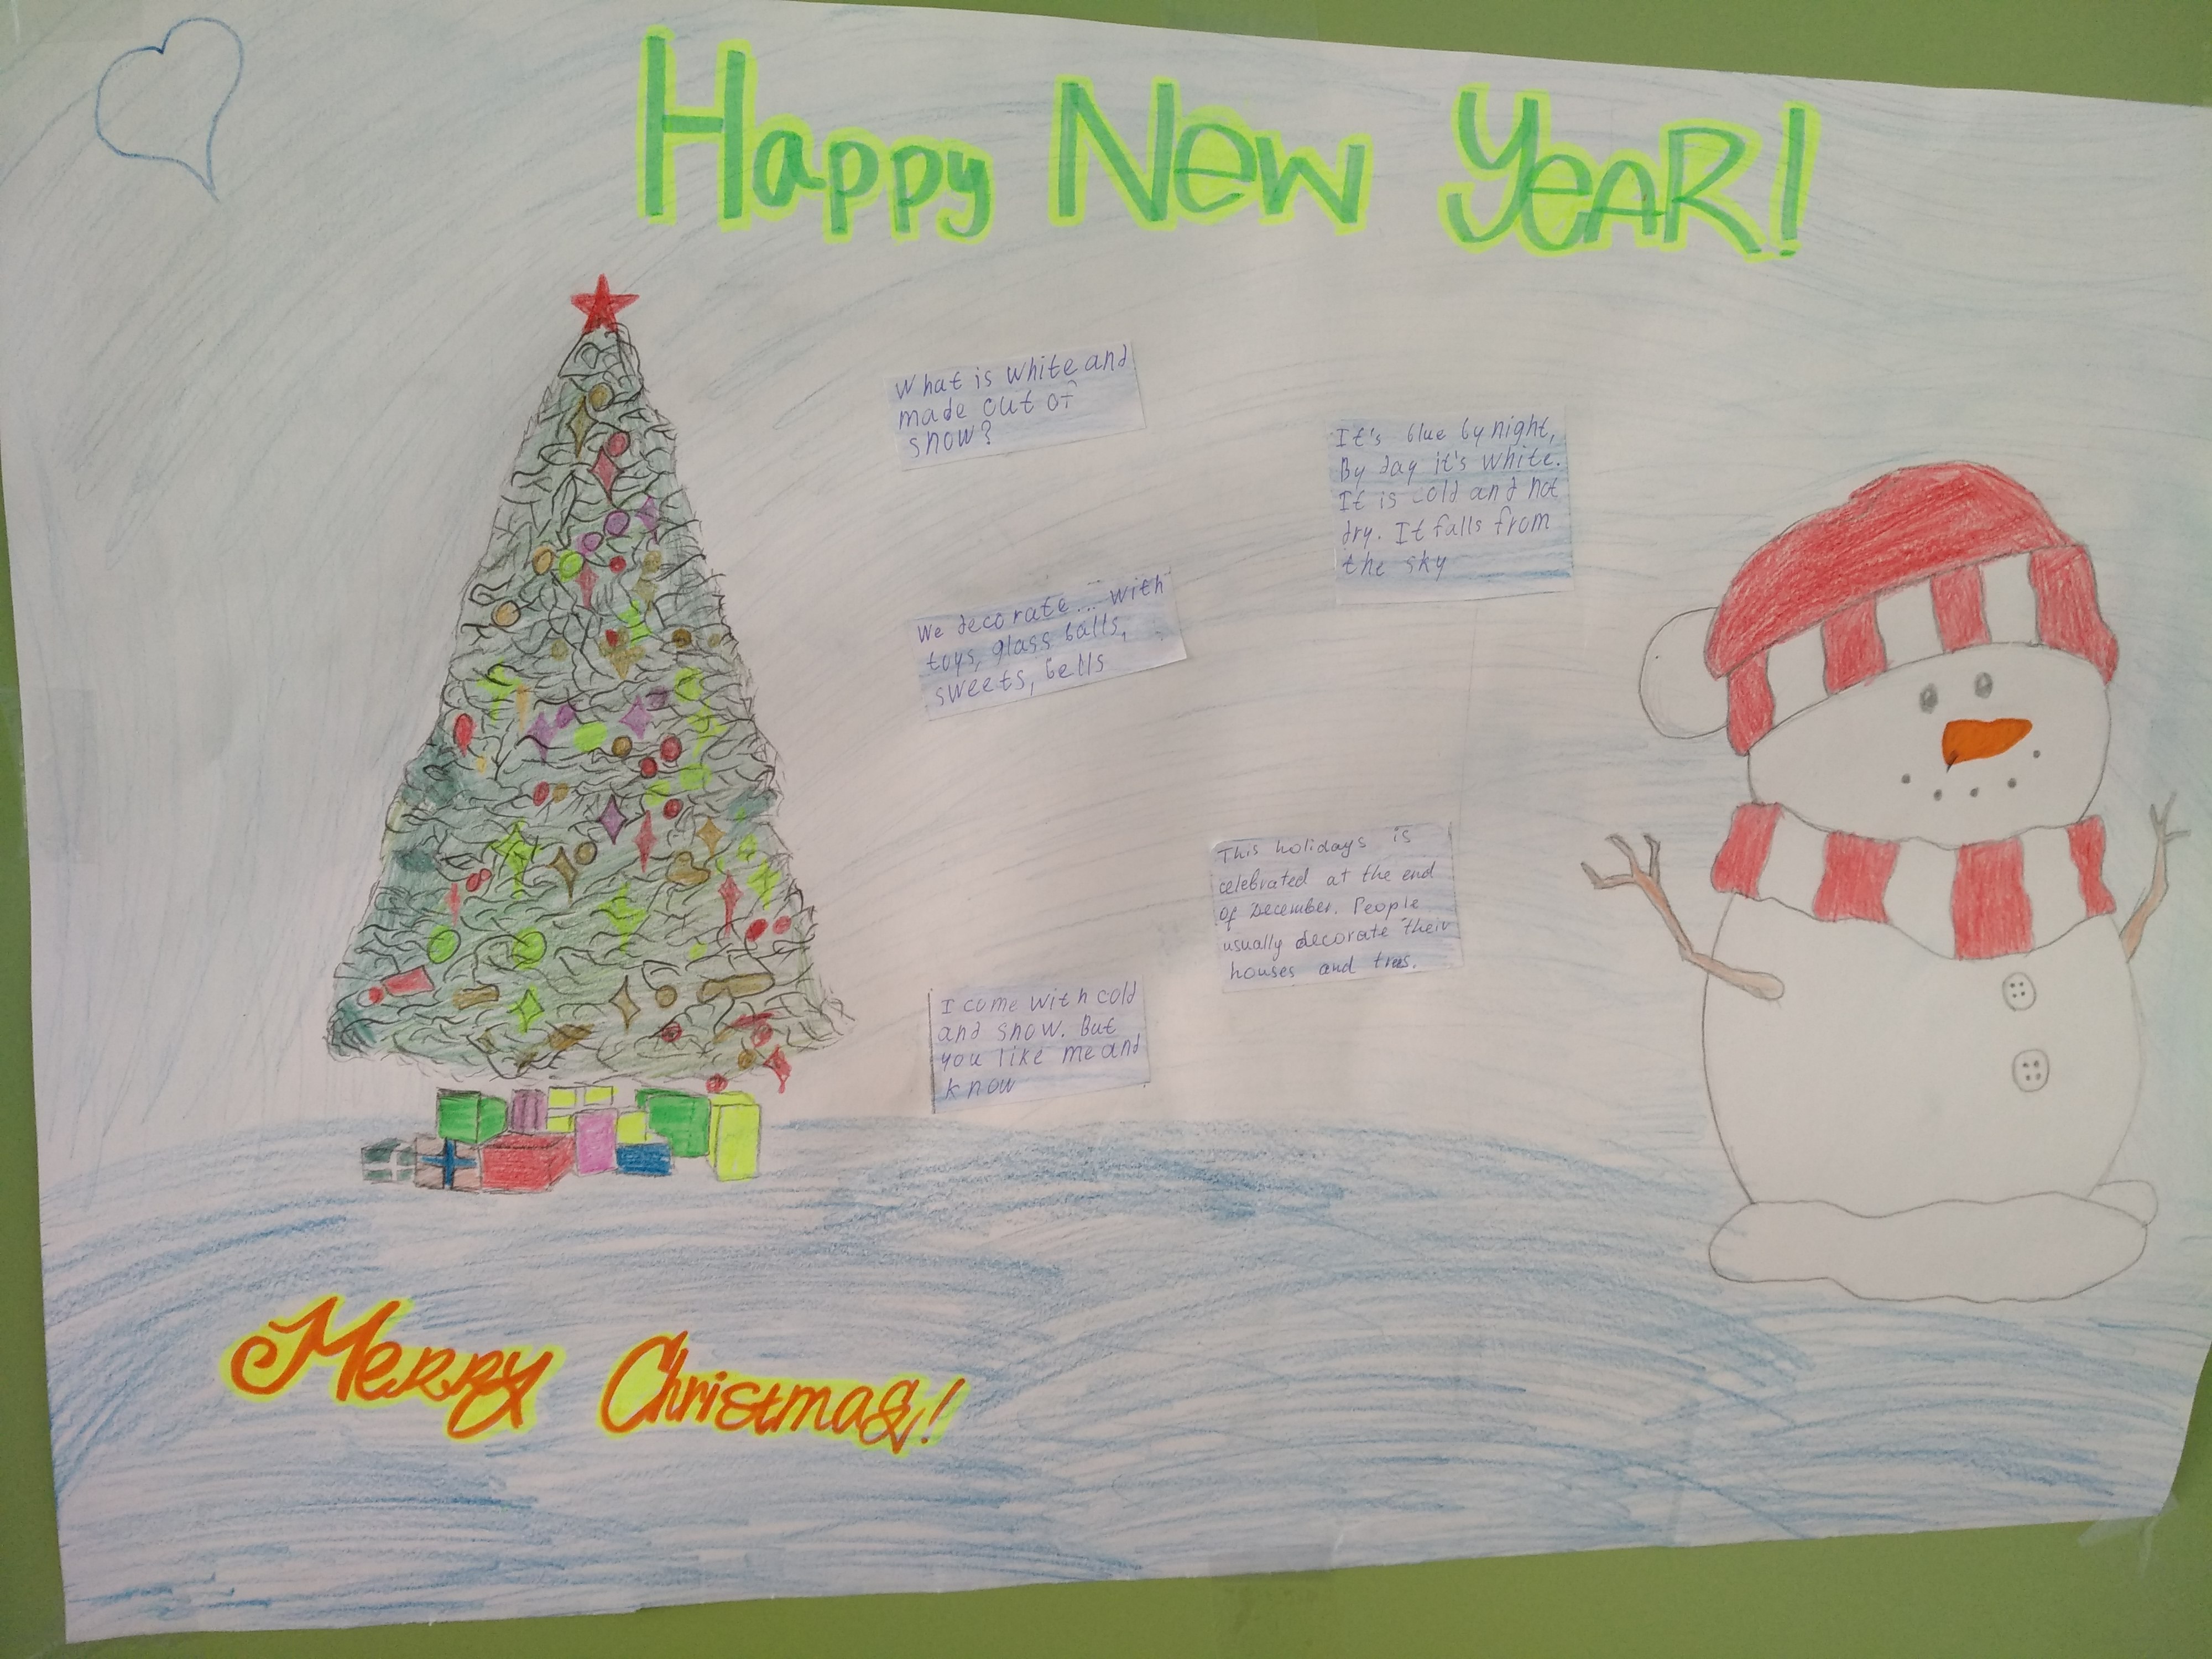 Happy New YeAR!
What is white and
made out of
snow?
It's blue by night,
By day it's white.
It is cold and not
dry. It falls from
the sky
We decorate... with
toys, glass balls,
sweets, bells
This holidays is
celebrated at the end
of December. People
usually decorate their
houses and trees.
I come with cold
and snow. But
you like me and
know
Merry Christmas!